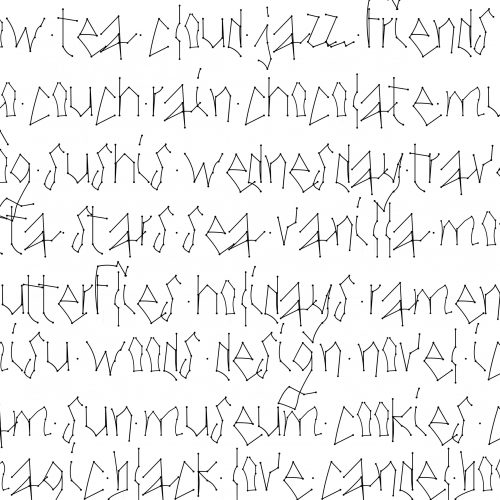 w·tea·cloud·jazz·friends
couch·rain·chocolate·mu
og·sushis·wednesday·trave
ta·stars·sea·vanilla·mo
utterflies·holidays·ramen
isu·woods·design·novel·
um·sun·museum·cookies·
magic·black·love·candles·bo